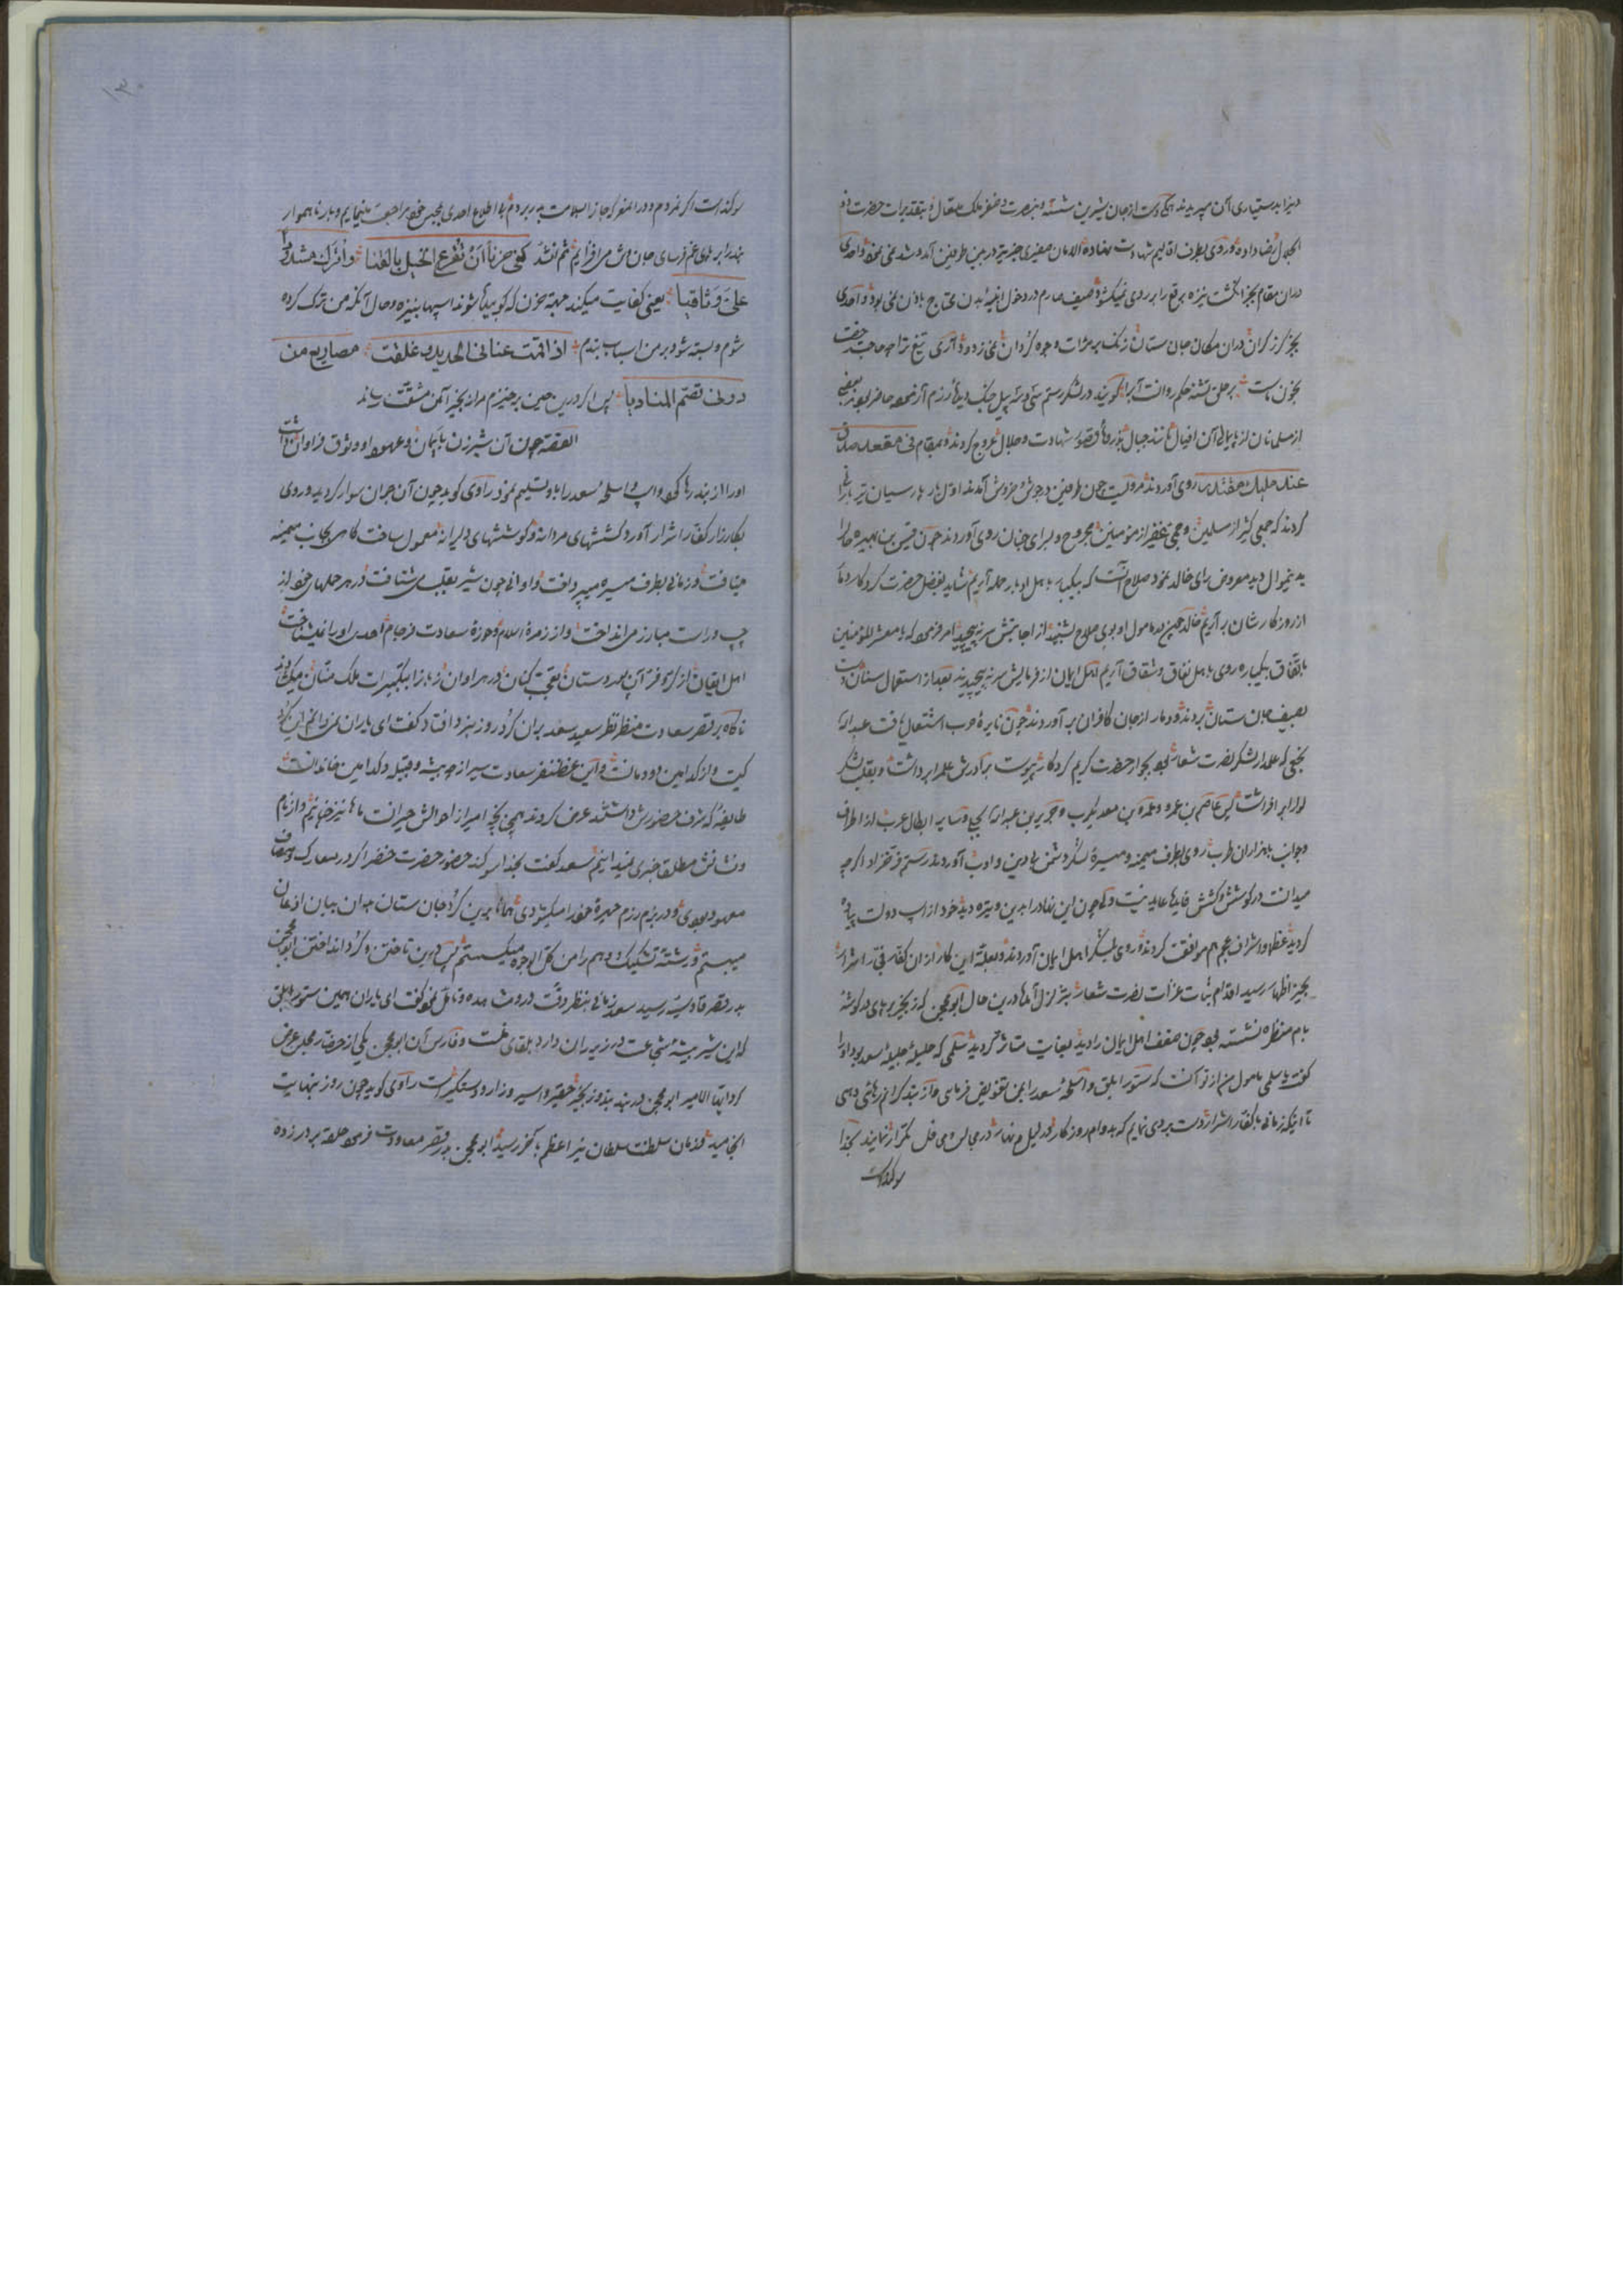 الجلال رضا داده و روی بطرف اقالیم شهادت نهاده الامان صغیری جز تیر در بین طرفین آمد و شد نمی نمود و احدی
دران مقام بجز انگشت نیزه برقع را بر روی نمیکشود و ضیف صارم در دخول ابدان محتاج باذن نمی بود و احدی
بجز گرز گران دران مکان جان ستان زنک بر مرات وجوه گردان نمی زدود آری تیغ ترا چه حاجت
بخون ماست بر حلق تشنه حکم روانست آب را گویند در لشکر رستم سی و سه پیل جنک دیده رزم آزموده حاضر بودند بعضی
از مسلمانان از پایمالی آن افیال مانند جبال بذروه قصور شهادت و جلال عروج کردند و بمقام فی مقعد صدق
عند ملیک مقتدر روی آوردند مرویست چون طرفین در جوش و خروش آمدند اول بار پارسیان تیر باران
کردند که جمعی کثیر از مسلمین و جمی غفیر از مؤمنین مجروح و بسرای جنان روی آوردند چون قیس بن هبیره حال را
بدینموال دید معروض رای خالد نمود صلاح آنست که بیکبار باهل ادبار حمله آریم شاید بفضل حضرت کردکار دمار
از روزکارشان برآریم خالد چون مامول او بوی صلاح شنید از اجابتش سر نپیچید امر فرمود که یا معشر المؤمنین
باتفاق یکباره روی باهل نفاق و شقاق آریم اهل ایمان از فرمایش سر نپیچیدند بعد از استعمال سنان دست
بسیف جان ستان بردند و دمار از جان کافران برآوردند چون نایره حرب اشتعال یافت عبدالله
نخعی که علمدار لشکر نصرت شعار بود بجوار حضرت کریم کردکار پیوست برادرش علم را برداشت و بقلب لشکر
لوا برافراشت پس عاصم بن عمرو و عمرو بن معدیکرب و جریر بن عبدالله بجلی و سایر ابطال عرب از اطراف
و جوانب با هزاران طرب روی بطرف میمنه و میسره لشکر دشمن بی دین و ادب آوردند رستم فرخزاد اگرچه
میدانست در کوشش و کشش فایدها عاید نیست ولی چون این نهاد را بدین وتیره دید خود از اسب دولت پیاده
گردید عظما و اشراف عجم هم موافقت کردند و روی بلشکر اهل ایمان آوردند و بعلت این کار از ان کفار فی النار اشرار
بحیز اظهار رسید اقدام ثبات غزات نصرت شعار بتزلزل آمد درین حال ابومحجن که زنجیر بر پای در گوشه
بام منظره نشسته بود چون ضعف اهل ایمان را دید بغایت متاثر گردید سلمی که حلیله جلیله سعد بود او را
گفت یا سلمی مامول من از تو آنست که ستور ابلق و اسلحه سعد را بمن تفویض فرمای و از بند گرانم رهائی دهی
تا اینکه زمانی با کفار اشرار دست بردی نمایم که بدوام روزکار در لیل و نهار در مجالس و محافل تکرار نمایند بخدا
سوکند است
۱۳۰
سوکند است اگر نمردم و در المعرکه جان بسلامت بدر بردم بی اطلاع احدی بحبس خود مراجعت مینمایم و بار ناهموار
بند را بر پای غم فرسای جان خویش می افزایم ثم انشد کفی حزنا ان تقرع الخیل بالقنا و اترک مشدودا
علی وثاقیا یعنی کفایت میکند مرتبه حزن که کوبیده شوند اسپها بنیزه و حال آنکه من ترک کرده
شوم و بسته شود بر من اسباب بندم اذا قمت عنانی الحدید و غلقت مصاریع من
دونی تصم المنادیا پس اگر درین حین برخیزم مرا زنجیر آهن مشقت رساند
القصه چون آن شیرزن بایمان و عهود او وثوق فراوان داشت
او را از بند رها کرد و اسپ و اسلحه سعد را باو تسلیم نمود راوی کوید چون آن جوان سوار گردید و روی
بکارزار کفار اشرار آورد کششهای مردانه و کوششهای دلیرانه معمول ساخت گاهی بجانب میمنه
می‌تافت و زمانی بطرف میسره میپرداخت و اوانی چون شیر بقلب می شتافت و در هر حملهای خود از
چپ و راست مبارز می انداخت و از زمره اسلام و حوزه سعادت فرجام احدی او را نمیشناخت
اهل ایقان از کر و فر آن پهلو دستان تعجب کنان و در هر اوان زبانرا بتکبیرات ملک منان میکشودند
ناگاه بر قصر سعادت منظر نظر سعید سعد بران گرد روز نبرد افتاد گفت ای یاران نمیدانم این گرد
کیست و از کدامین دودمانست و این غضنفر سعادت سیر از چه بیشه و قبیله و کدامین خاندانست
طایفه که شرف حضورش داشتند عرض کردند همچنانکه امیر از احوالش حیرانست ماها نیز حیرانیم و از نام
و نشانش مطلقا خبری نمیدانیم سعد گفت بخدا سوکند حضور حضرت خضر اگر در معارک و مصاف
معهود بودی و در بزم رزم چهره خود را میکشودی همانا برین گرد جان ستان جوان بیان اذعان
میبستم و رشته تشکیک و وهم را من کل الوجوه میکسستم پس درین تاختن و گرد انداختن ابومحجن
بدر قصر قادسیه رسید سعد زمانی بنظر دقت درو مشاهده و تامل نمود گفت ای یاران همین ستور ابلق
که این شیر بیشه شجاعت در زیر ران دارد بلقای منست و فارس آن ابومحجن یکی از حضار مجلس عرض
کرد ایها الامیر ابومحجن در بند بند و زنجیر حقیر و اسیر و زار و دستگیر است راوی کوید چون روز بنهایت
انجامید و زمان سلطنت سلطان نیر اعظم بآخر رسید ابومحجن بدر قصر معاودت فرمود حلقه بر در زده